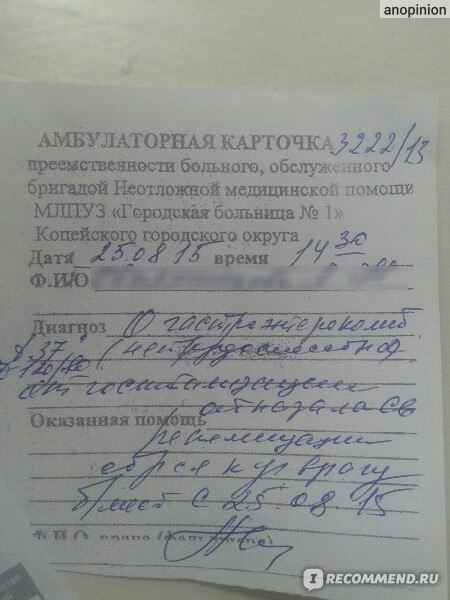 anopinion
АМБУЛАТОРНАЯ КАРТОЧКА 3222/13
преемственности больного, обслуженного
бригадой Неотложной медицинской помощи
МЛПУЗ «Городская больница № 1»
Копейского городского округа
Дата 25.08.15 время 14 30
Ф.И.О
Диагноз О гастроэнтероколит
37 (нетрудоспособна)
120/80
от госпитализации
отказалась
Оказанная помощь
рекомендации
к уч врачу
б/лист с 25.08.15
Ф.И.О. врача
IRECOMMEND.RU